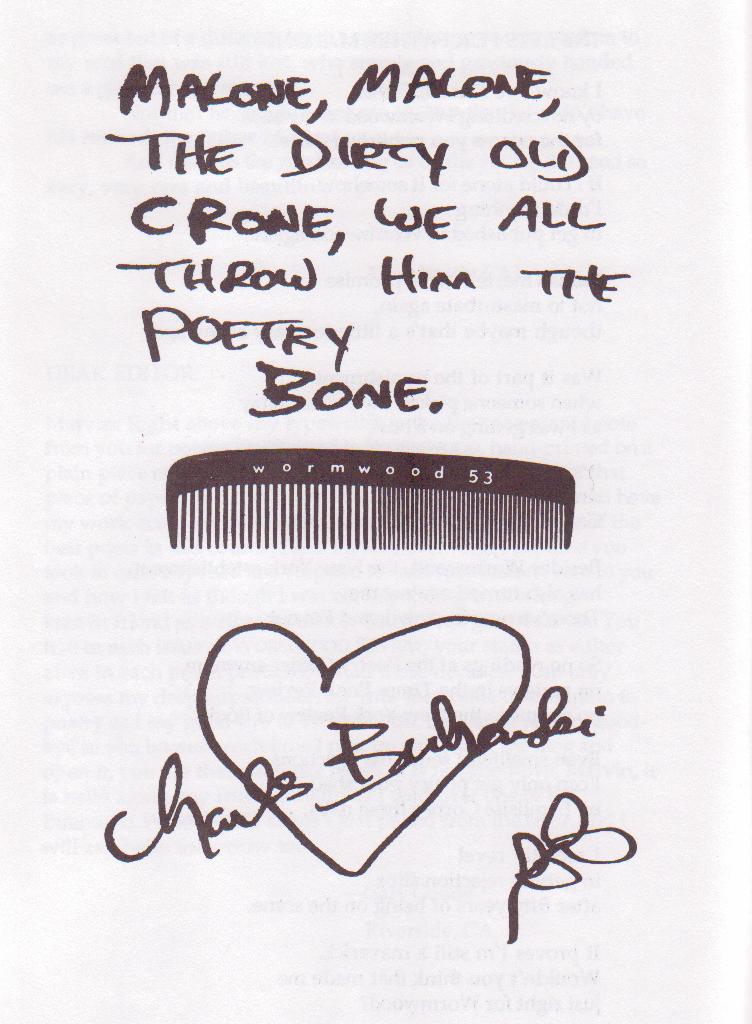 MALONE, MALONE,
THE DIRTY OLD
CRONE, WE ALL
THROW HIM THE
POETRY
BONE.
wormwood 53
Charles Bukowski